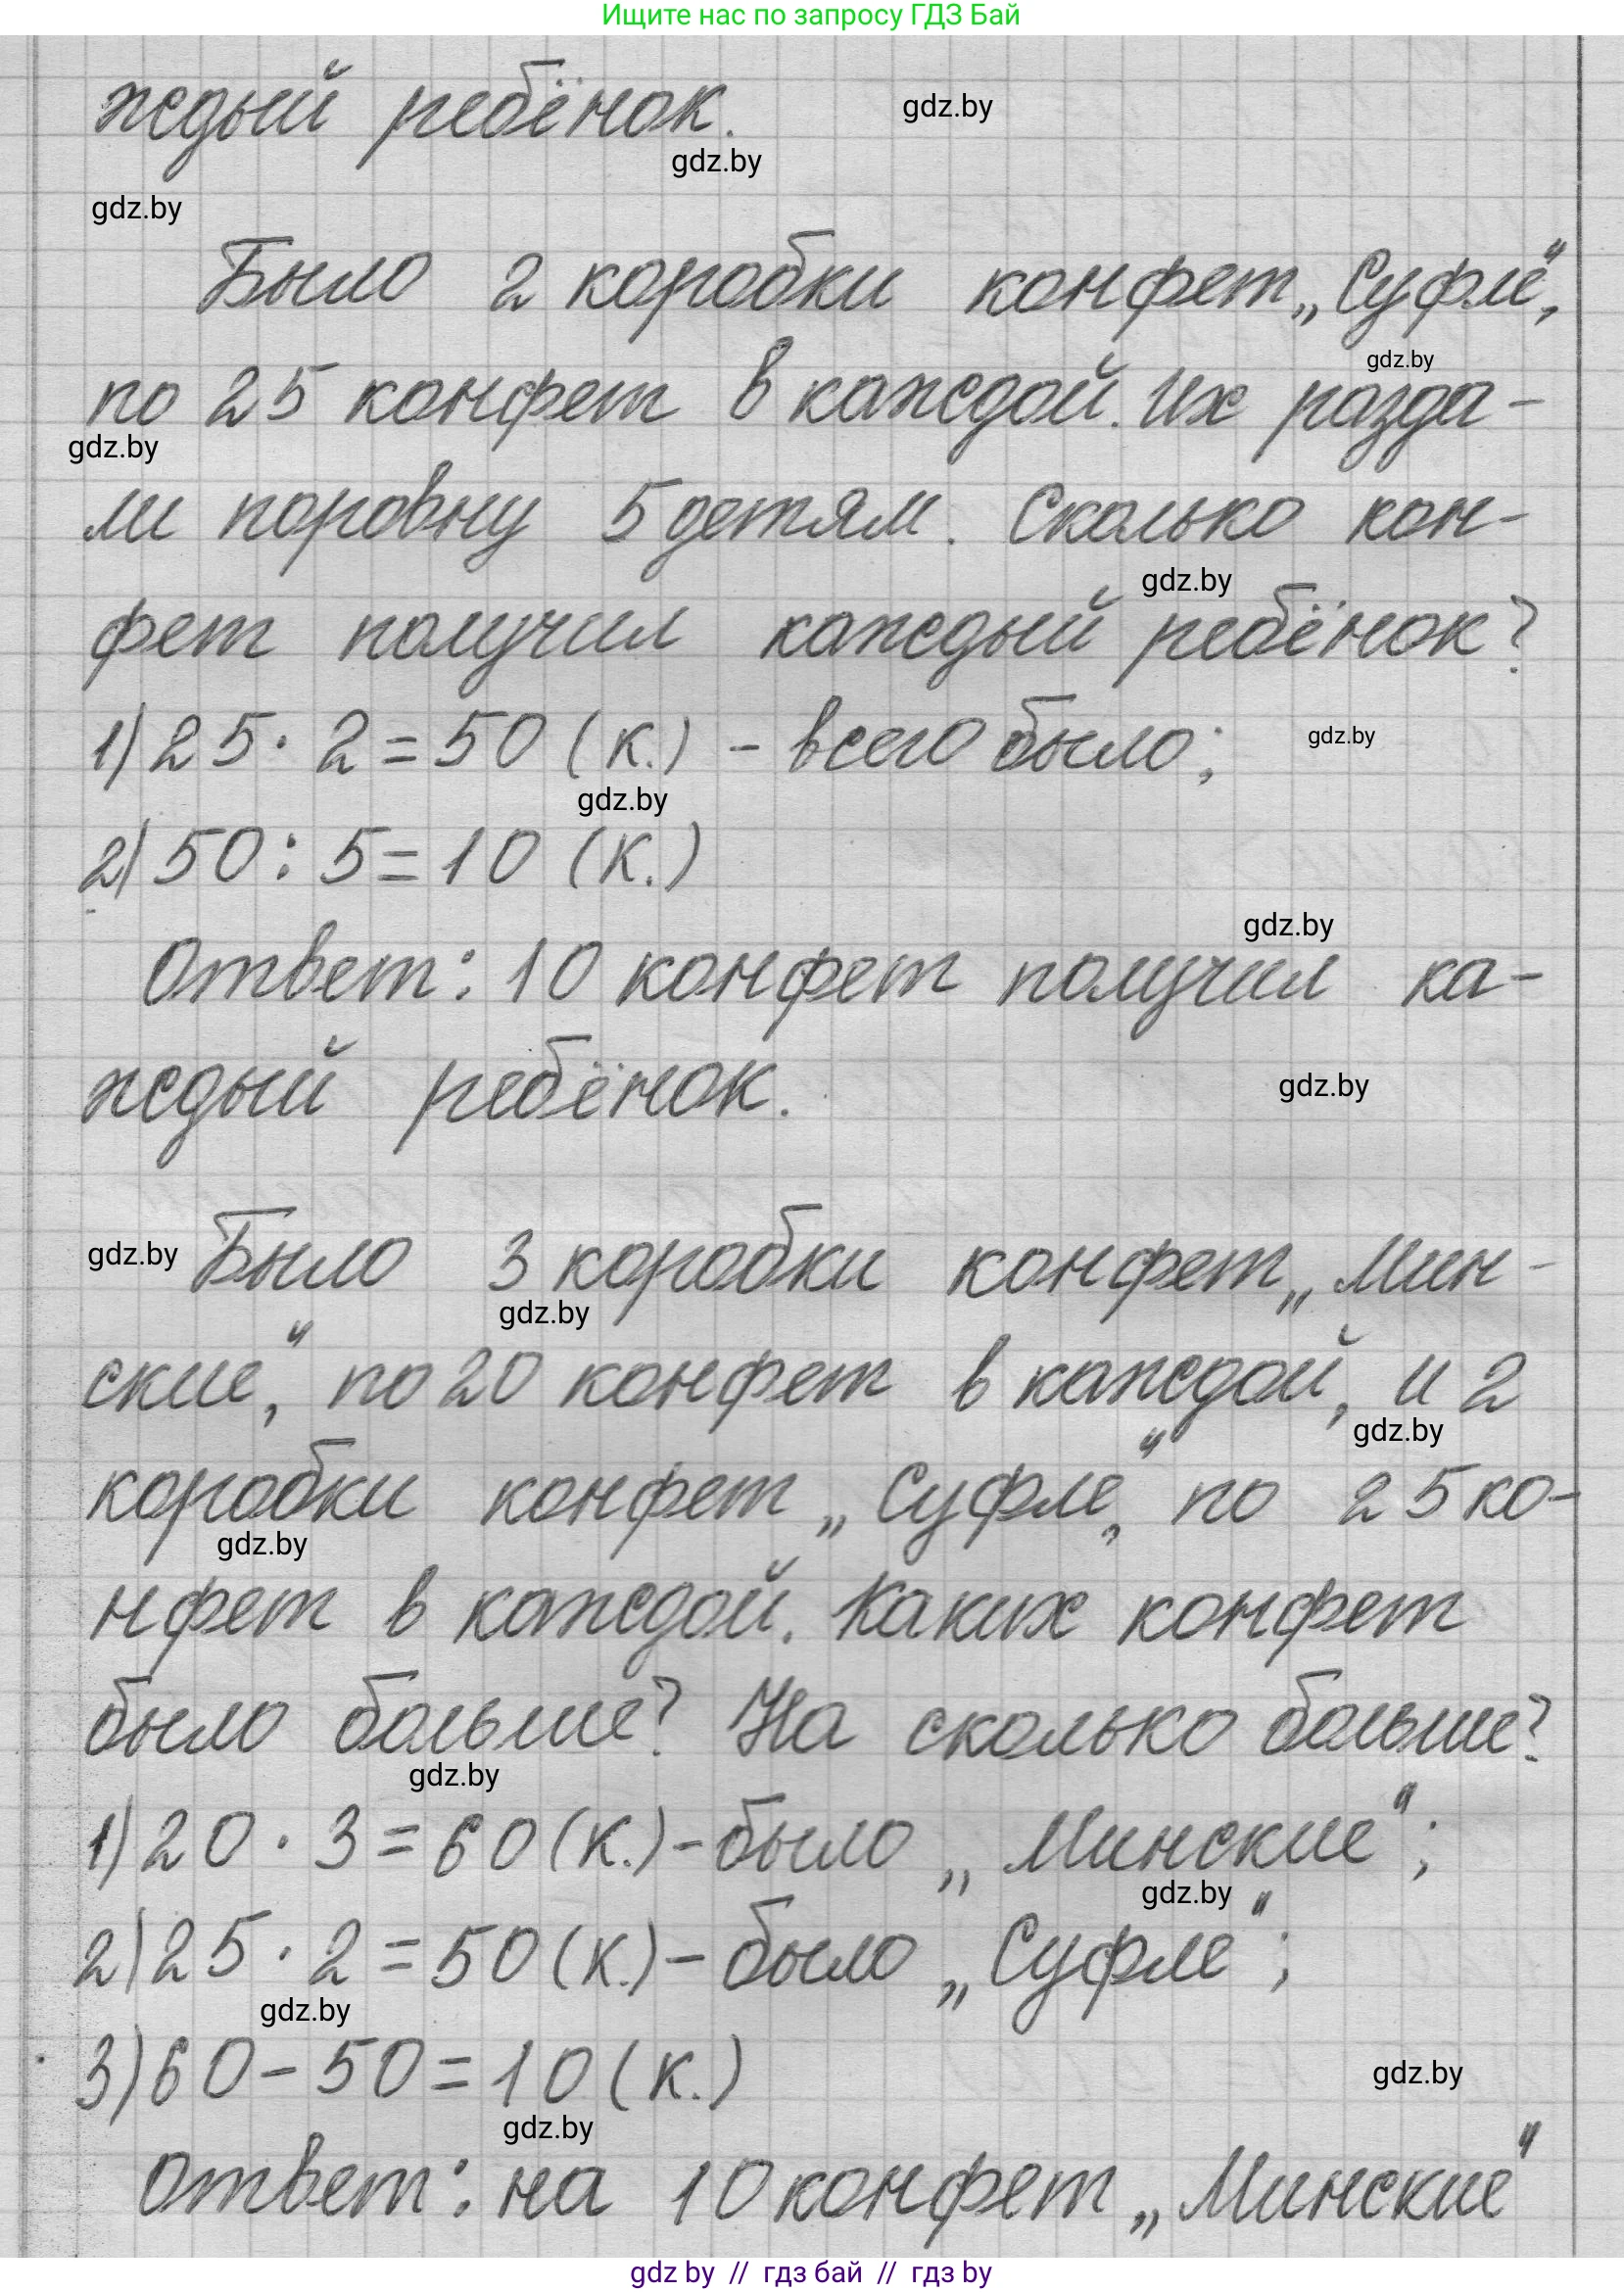 Ищите нас по запросу ГДЗ Бай
ждый ребёнок.
gdz.by
gdz.by
gdz.by
Было 2 коробки конфет „Суфле“,
gdz.by
по 25 конфет в каждой. Их разда-
gdz.by
ли поровну 5 детям. Сколько кон-
gdz.by
фет получил каждый ребёнок?
1) 25 · 2 = 50 (к.) - всего было;
gdz.by
gdz.by
2) 50 : 5 = 10 (к.)
gdz.by
Ответ: 10 конфет получил ка-
ждый ребёнок.
gdz.by
gdz.by
Было 3 коробки конфет „Мин-
gdz.by
ские“, по 20 конфет в каждой, и 2
gdz.by
коробки конфет „Суфле“, по 25 ко-
gdz.by
нфет в каждой. Каких конфет
было больше? На сколько больше?
gdz.by
1) 20 · 3 = 60 (к.) - было „Минские“;
gdz.by
2) 25 · 2 = 50 (к.) - было „Суфле“;
gdz.by
3) 60 - 50 = 10 (к.)
gdz.by
gdz.by
Ответ: на 10 конфет „Минские“
gdz by // гдз бай // гдз by